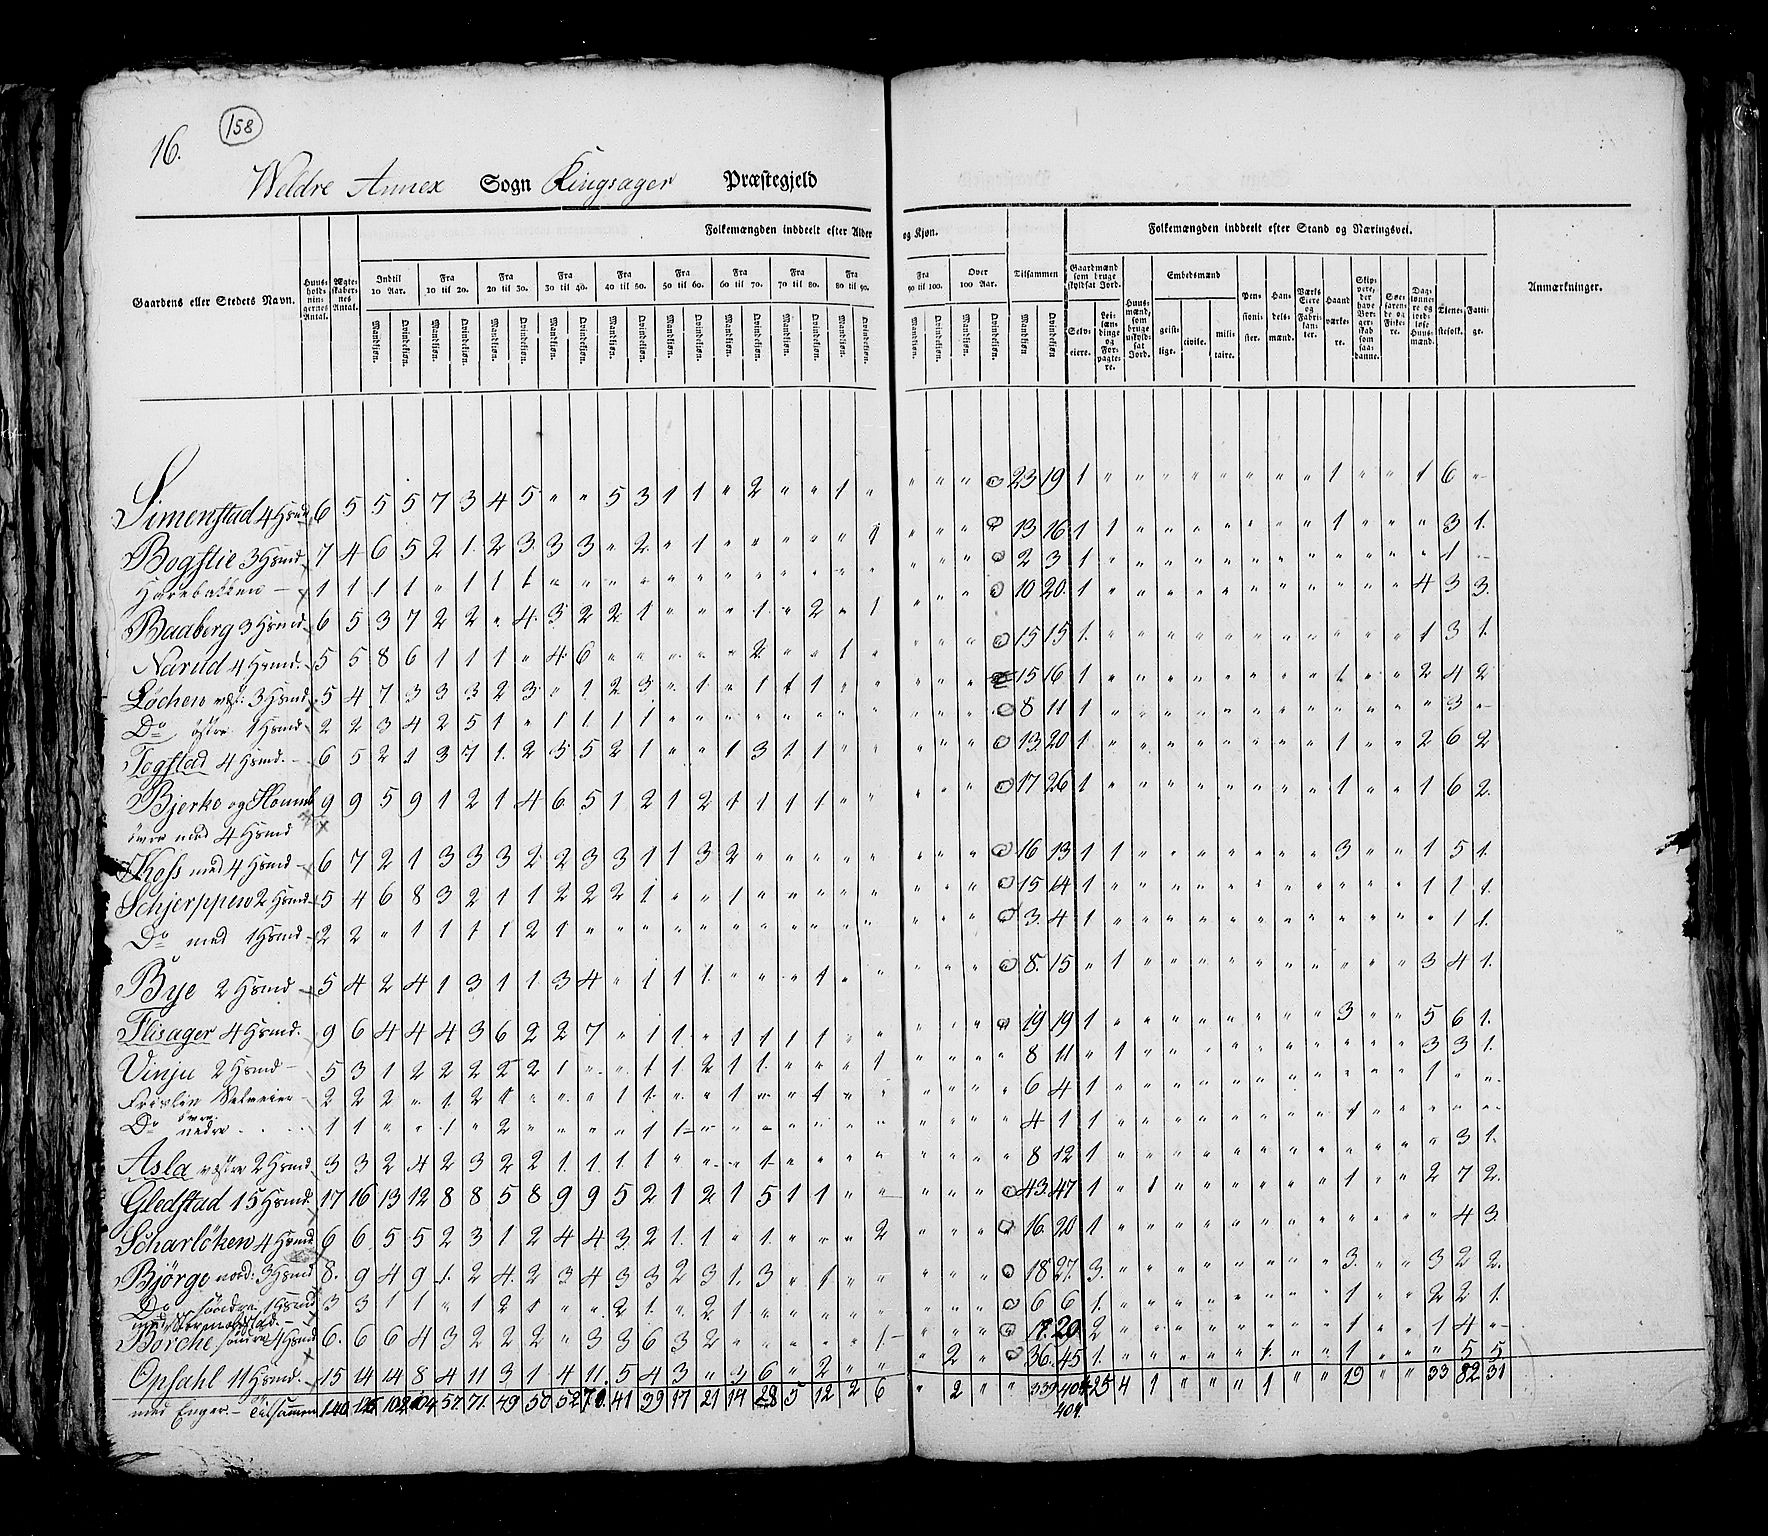 16.
158
Weldre Annex Sogn Ringsager Præstegjeld
Folkemængden inddeelt efter Alder og Kjøn.
Folkemængden inddeelt efter Stand og Næringsvei.
Gaardens eller Stedets Navn.
Huus-holdnin-gernes Antal.
Ægte-skaber-nes Antal.
Indtil 10 Aar.
Fra 10 til 20.
Fra 20 til 30.
Fra 30 til 40.
Fra 40 til 50.
Fra 50 til 60.
Fra 60 til 70.
Fra 70 til 80.
Fra 80 til 90.
Fra 90 til 100.
Over 100 Aar.
Tilsammen
Mandkjøn. Qvindekjøn.
Gaardmænd som bruge skyldsat Jord.
Selv-eiere.
Lei-læn-dinge og For-pagte-re.
Huus-mænd, som bruge uskyld-sat Jord.
Embedsmænd
geist-lige.
civile.
mili-taire.
Pen-sioni-ster.
Han-dels-mænd.
Værks Eiere og Fabri-kan-ter.
Haand værke-re.
Tjene-stefolk.
Fatti-ge.
Anmærkninger.
Simenstad 4 Hsmd 6 5 5 5 7 3 4 5 " " 5 3 1 1 " 2 " " 1 " " " " 23 19 1 " " " " " " " " 1 " " 1 6 "
Bogstie 3 Hsmd 7 4 6 5 2 1 2 3 3 3 " 2 " 1 " " " " " 1 " " " 13 16 1 1 " " " " " " " 1 " " " 3 1.
Harebakken 1 1 1 1 " 1 1 1 " " " " " " " " " " " " 2 3 1 " " " " " " " " " " " " 1 "
Baaberg 3 Hsmd 6 5 3 7 2 2 " 4 3 2 2 1 " " " 1 " 2 " 1 " " " 10 20 1 " " " " " " " " " " " 4 3 3.
Narud 4 Hsmd. 5 5 8 6 1 1 1 " 4 6 " " " " " 2 " " 1 " " " " 15 15 1 " " " " " " " " " " " 1 3 1.
Löchen vest: 3 Hsmd 5 4 7 3 3 3 2 3 " 1 2 3 " 1 " 1 1 1 " " " " " 15 16 1 " " " " " " " " 1 " " 2 4 2
Do östre 1 Hsmd 2 2 3 4 2 5 1 " 1 1 1 1 " " " " " " " " " " " 8 11 1 " " " " " " " " " " " " 3 "
Togstad 4 Hsmd. 6 5 2 1 3 7 1 2 5 5 2 1 " " 1 3 1 1 " " " " " 13 20 1 " " " " " " " " 1 " " 2 6 2
Bjerke og 9 9 5 9 1 2 1 4 6 5 1 2 1 2 1 1 1 1 " " " " " 17 26 1 " " " " " " " " 1 " " 1 6 2.
övre med 4 Hsmd
Koss med 4 Hsmd 6 7 2 1 3 3 3 2 2 3 3 1 1 3 2 " " " " " " " " 16 13 1 1 " " " " " " " 3 " " 1 5 1.
Schjerppen 2 Hsmd 5 4 6 8 3 2 1 1 2 2 2 1 " " 1 " " " " " " " " 15 14 1 " " " " " " " " " " " 1 1 1.
Do med 1 Hsmd 2 2 " 1 1 1 1 2 1 " " " " " " " " " " " " " " 3. 4 1 " " " " " " " " " " " " 1 1.
Bye 2 Hsmd 5 4 2 4 1 3 1 1 3 4 " 1 1 1 " " " 1 " " " " " 8. 15 " 1 " " " " " " " " " " 3 4 1.
Flisager 4 Hsmd. 9 6 4 4 4 3 6 2 2 7 " 1 1 " 1 1 1 1 " " " " " 19 19 1 " " " " " " " " 3 " " 5 6 1.
Vinju 2 Hsmd 5 3 1 2 2 2 2 2 1 " " 1 1 2 1 1 " " " 1 " " " 8 11 " 1 " " " " " " " " " " 3 3 1.
Frislin Selveier 2 2 2 " 1 2 1 " " " 1 1 " " 1 " " 1 " " " " " 6 4 1 " " " " " " " " " " " 1 " "
Do övre nedre 1 1 " " 1 " 2 " " " " 1 1 " " " " " " " " " " 4 1 1 " " " " " " " " 1 " " " " "
Asla vestre 2 Hsmd 3 3 2 4 2 3 2 2 1 1 1 1 " " " 1 " " " " " " " 8 12 1 " " " " " " " " " " " " 3 1.
Gledstad 15 Hsmd 17 16 13 12 8 8 5 8 9 9 5 2 1 2 1 5 1 1 " " " " " 43 47 1 " 1 " " " " " " 1 " " 2 7 2.
Scharlöken 4 Hsmd 6 6 5 5 2 3 1 2 4 4 3 2 1 1 " 1 " " " 2 " " " 16 20 1 " " " " " " " " " " " " 4 3.
Björge nord: 3 Hsmd 8. 9 4 9 1 2 4 2 3 4 3 3 2 3 1 3 " 1 " " " " " 18 27 3. " " " " " " " " 3. " " 3 2 2.
Do söndre 1 Hsmd 3 3 1 1 " 1 2 1 " " 2 1 " 2 1 " " " " " " " " 6 6 1. " " " " " " " " 1 " " 2 2 1.
Börche söndre 4 Hsmd 6. 6 6 4 3 2 2 2 " 3 3 6 3 2 " " " " " 1 " " " 17 20 2 " " " " " " " " 1 " " 1 4 "
Opsahl 11 Hsmd. 15 14 14 8 4 11 3 1 4 11 5 4 3 " 2 6 " 2 " " " 2 " 36 45 1. " " " " " " 1 " 1 " " " 5 5
med Enger. Tilsammen 140 102 104 57 71 49 50 52 41 39 17 21 14 28 5 12 2 6 " 2 " " 25 4 1 " " " " 1 " 19 " " 33 82 31
404.